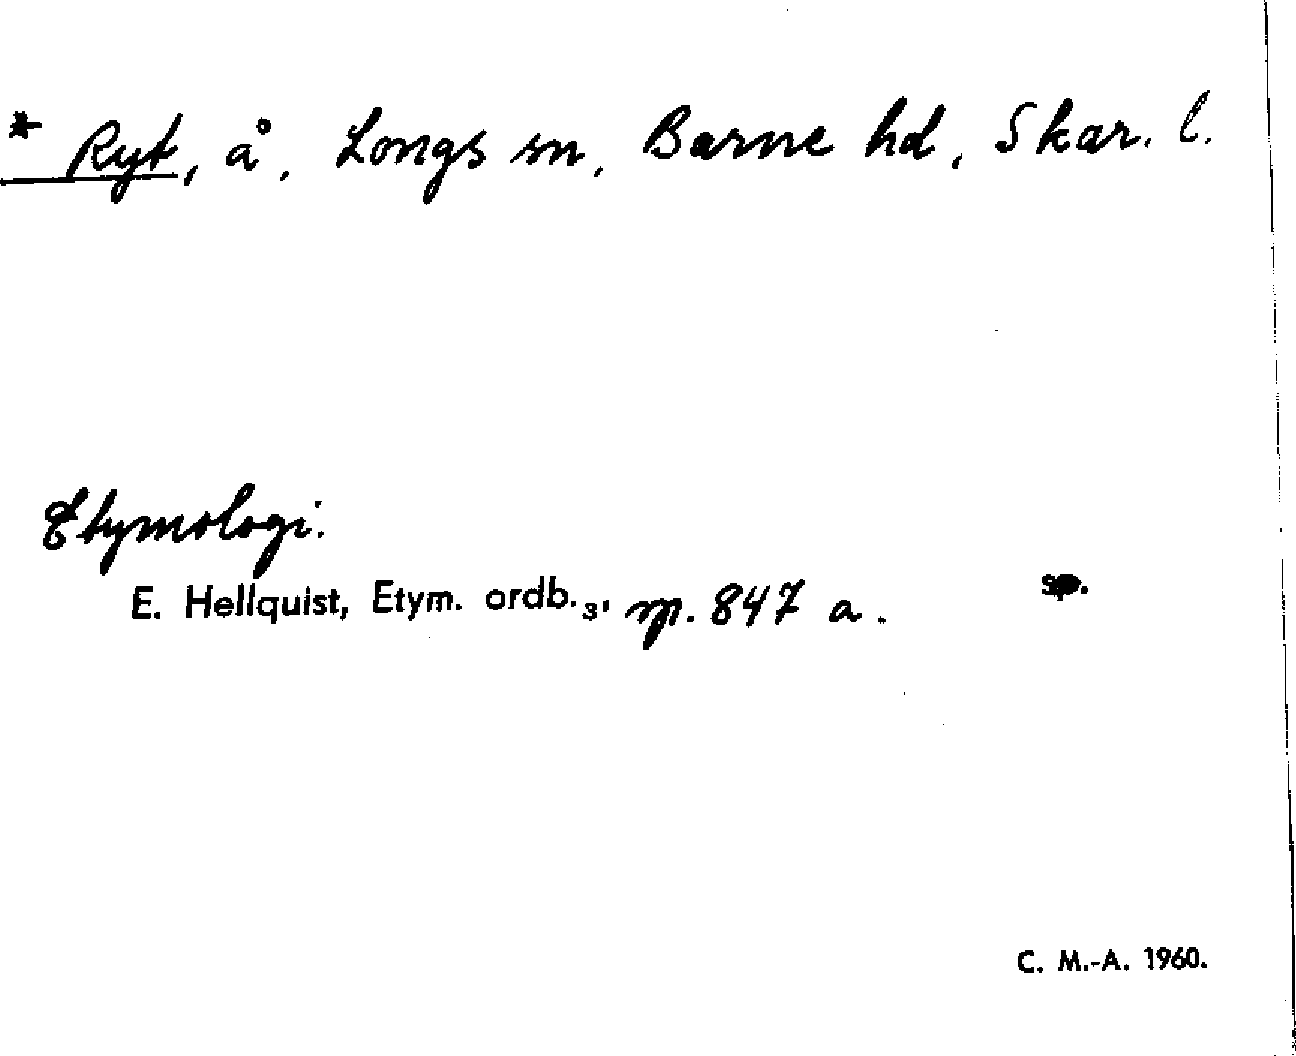 * Ryt, å, Longs sn, Barne hd, Skar. l.
Etymologi.
E. Hellquist, Etym. ordb.₃, sp. 847 a. sp.
C. M.-A. 1960.